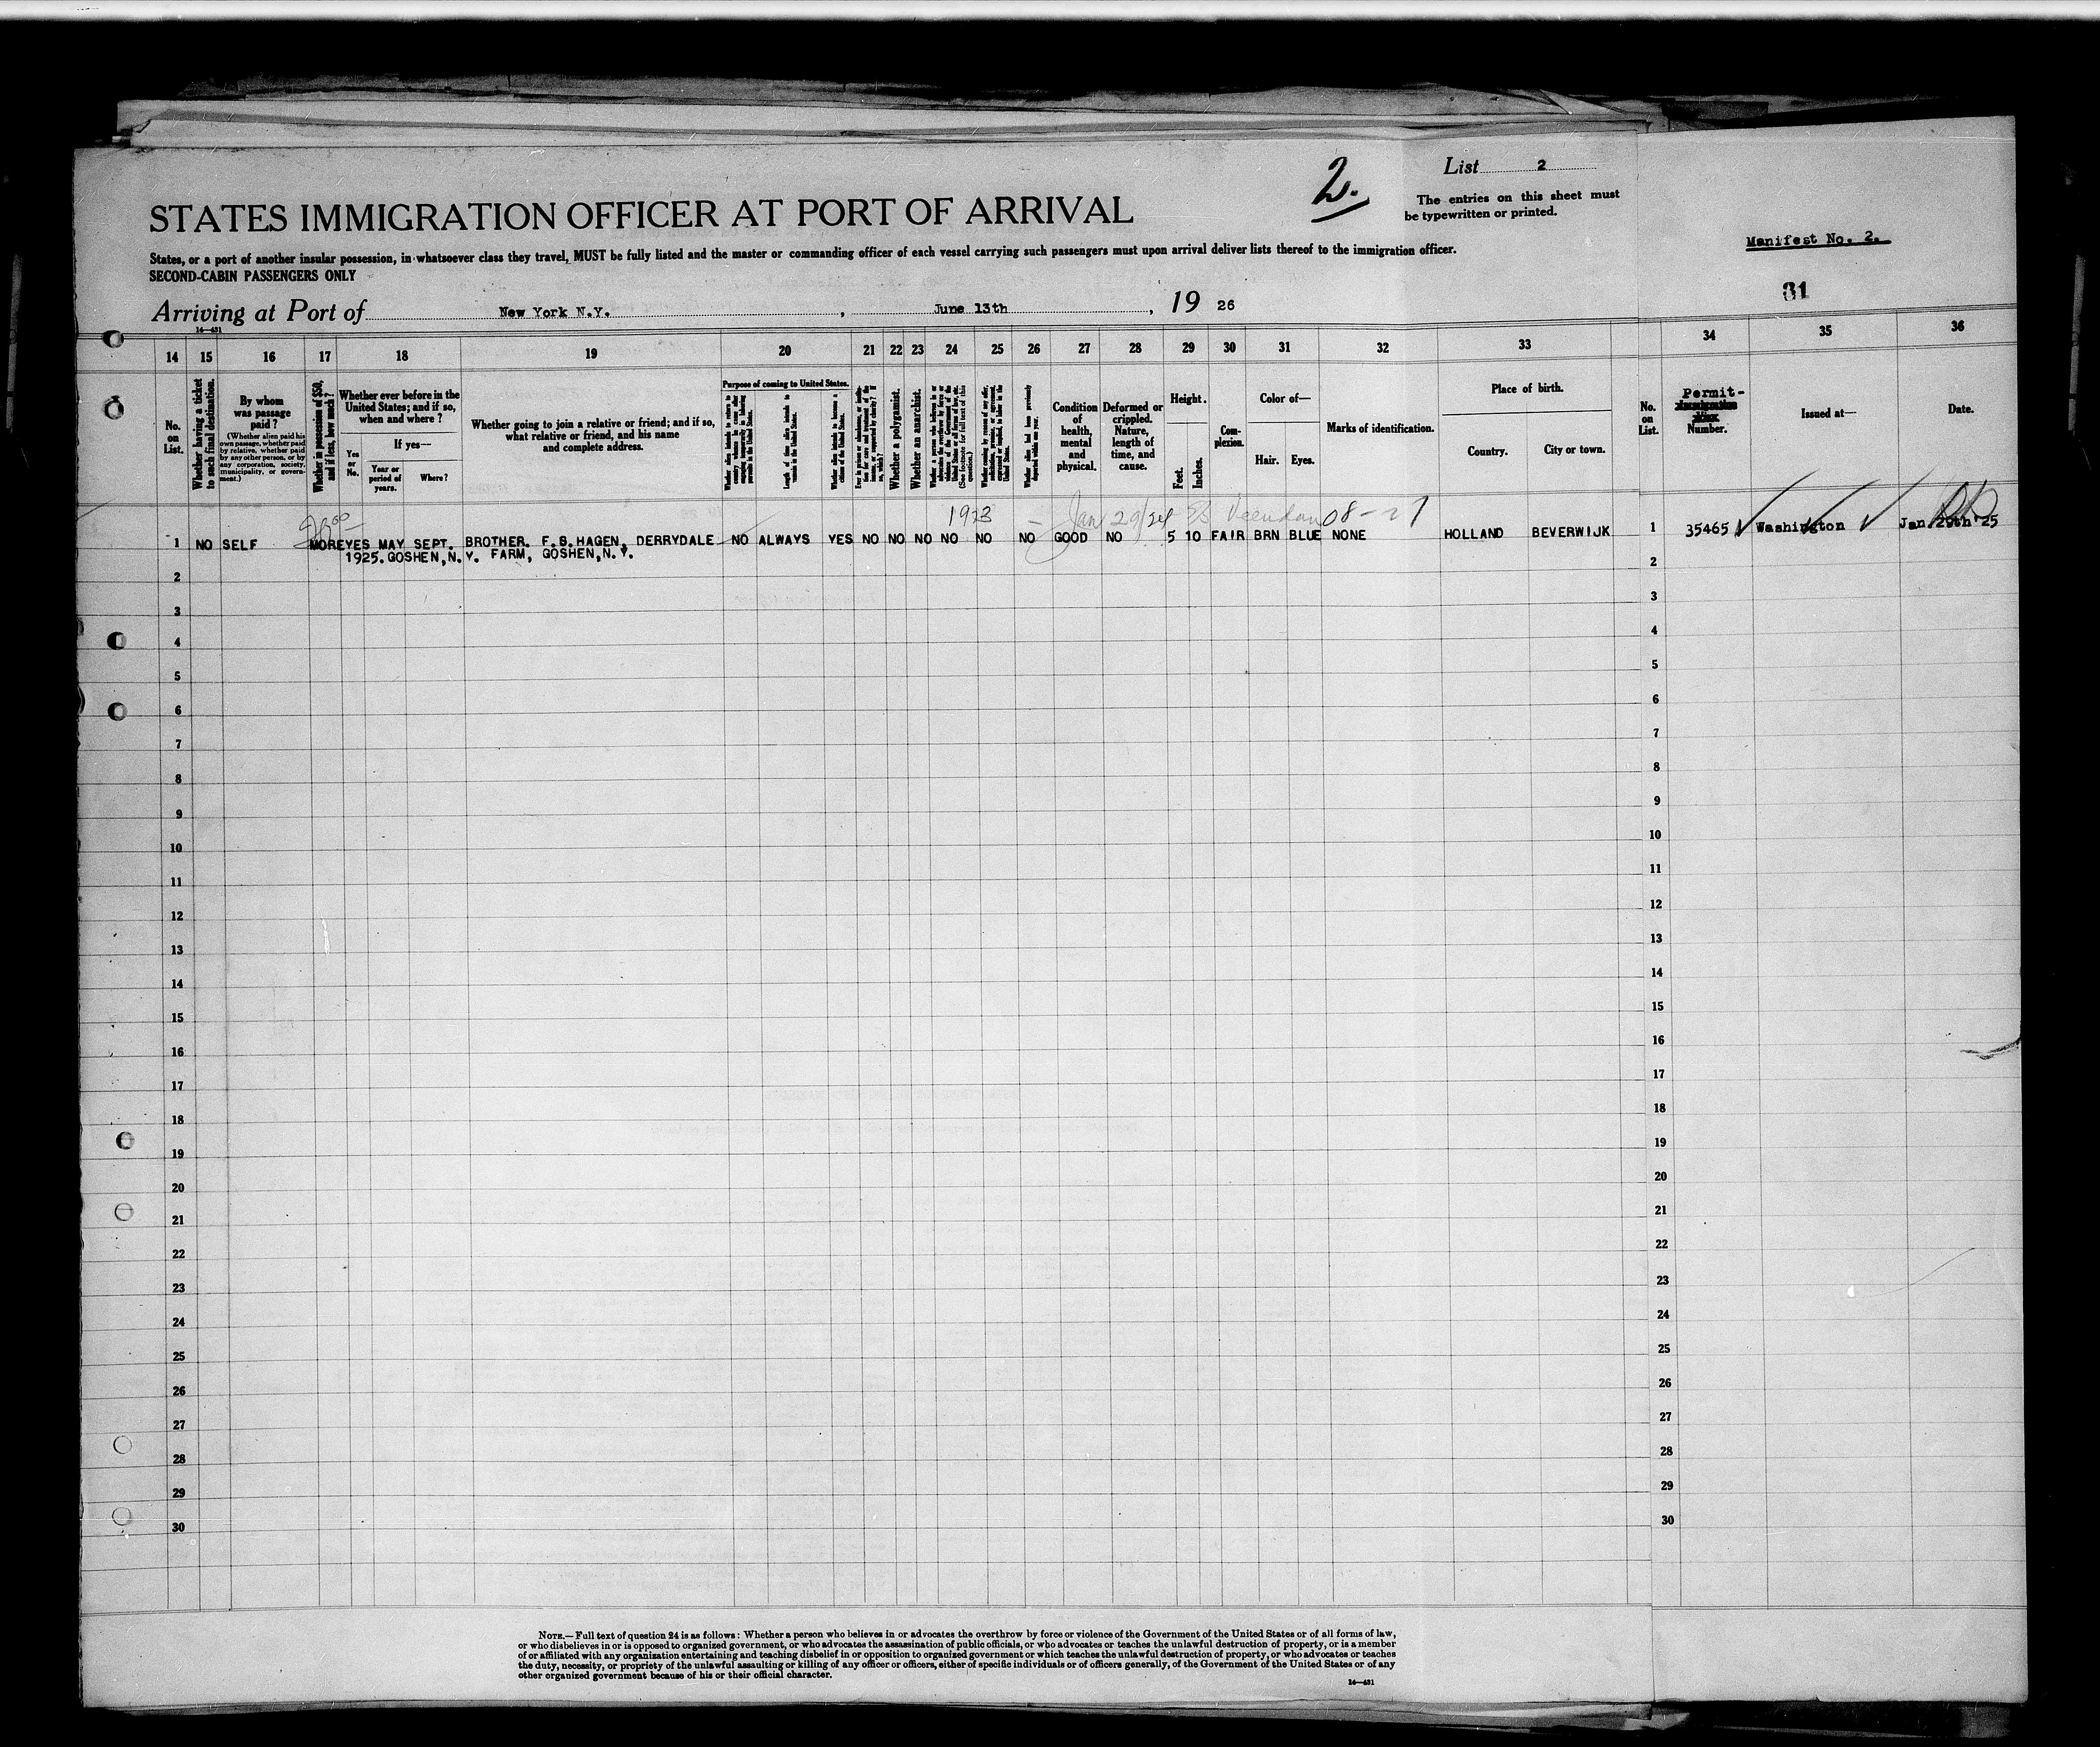 2.
List 2
The entries on this sheet must
be typewritten or printed.
STATES IMMIGRATION OFFICER AT PORT OF ARRIVAL
States, or a port of another insular possession, in whatsoever class they travel, MUST be fully listed and the master or commanding officer of each vessel carrying such passengers must upon arrival deliver lists thereof to the immigration officer.
SECOND-CABIN PASSENGERS ONLY
Manifest No. 2.
31
Arriving at Port of New York N.Y. , June 13th , 19 26
14—431
14 15 16 17 18 19 20 21 22 23 24 25 26 27 28 29 30 31 32 33 34 35 36
No. on List.
Whether having a ticket to such final destination.
By whom was passage paid?
(Whether alien paid his own passage, whether paid by relative, whether paid by any other person, or by any corporation, society, municipality, or government.)
Whether in possession of $50, and if less, how much?
Whether ever before in the United States; and if so, when and where?
Yes or No.
If yes—
Year or period of years.
Where?
Whether going to join a relative or friend; and if so, what relative or friend, and his name and complete address.
Purpose of coming to United States.
Length of time alien intends to remain in the United States.
Whether alien intends to become a citizen of the United States.
Whether a polygamist.
Whether an anarchist.
(See footnote for full text of this question.)
Whether alien had been previously deported within one year.
Condition of health, mental and physical.
Deformed or crippled. Nature, length of time, and cause.
Height.
Feet.
Inches.
Complexion.
Color of—
Hair.
Eyes.
Marks of identification.
Place of birth.
Country.
City or town.
No. on List.
Permit-
Number.
Issued at—
Date.
1923 — Jan 29/24 SS Veendam
1 NO SELF MORE YES MAY SEPT. BROTHER. F.B.HAGEN, DERRYDALE NO ALWAYS YES NO NO NO NO NO NO GOOD NO 5 10 FAIR BRN BLUE NONE HOLLAND BEVERWIJK 1 35465 Washington Jan 29th'25
1925. GOSHEN,N.Y. FARM, GOSHEN,N.Y.
2 2
3 3
4 4
5 5
6 6
7 7
8 8
9 9
10 10
11 11
12 12
13 13
14 14
15 15
16 16
17 17
18 18
19 19
20 20
21 21
22 22
23 23
24 24
25 25
26 26
27 27
28 28
29 29
30 30
NOTE.—Full text of question 24 is as follows: Whether a person who believes in or advocates the overthrow by force or violence of the Government of the United States or of all forms of law,
or who disbelieves in or is opposed to organized government, or who advocates the assassination of public officials, or who advocates or teaches the unlawful destruction of property, or is a member
of or affiliated with any organization entertaining and teaching disbelief in or opposition to organized government or which teaches the unlawful destruction of property, or who advocates or teaches
the duty, necessity, or propriety of the unlawful assaulting or killing of any officer or officers, either of specific individuals or of officers generally, of the Government of the United States or of any
other organized government because of his or their official character.
14—431